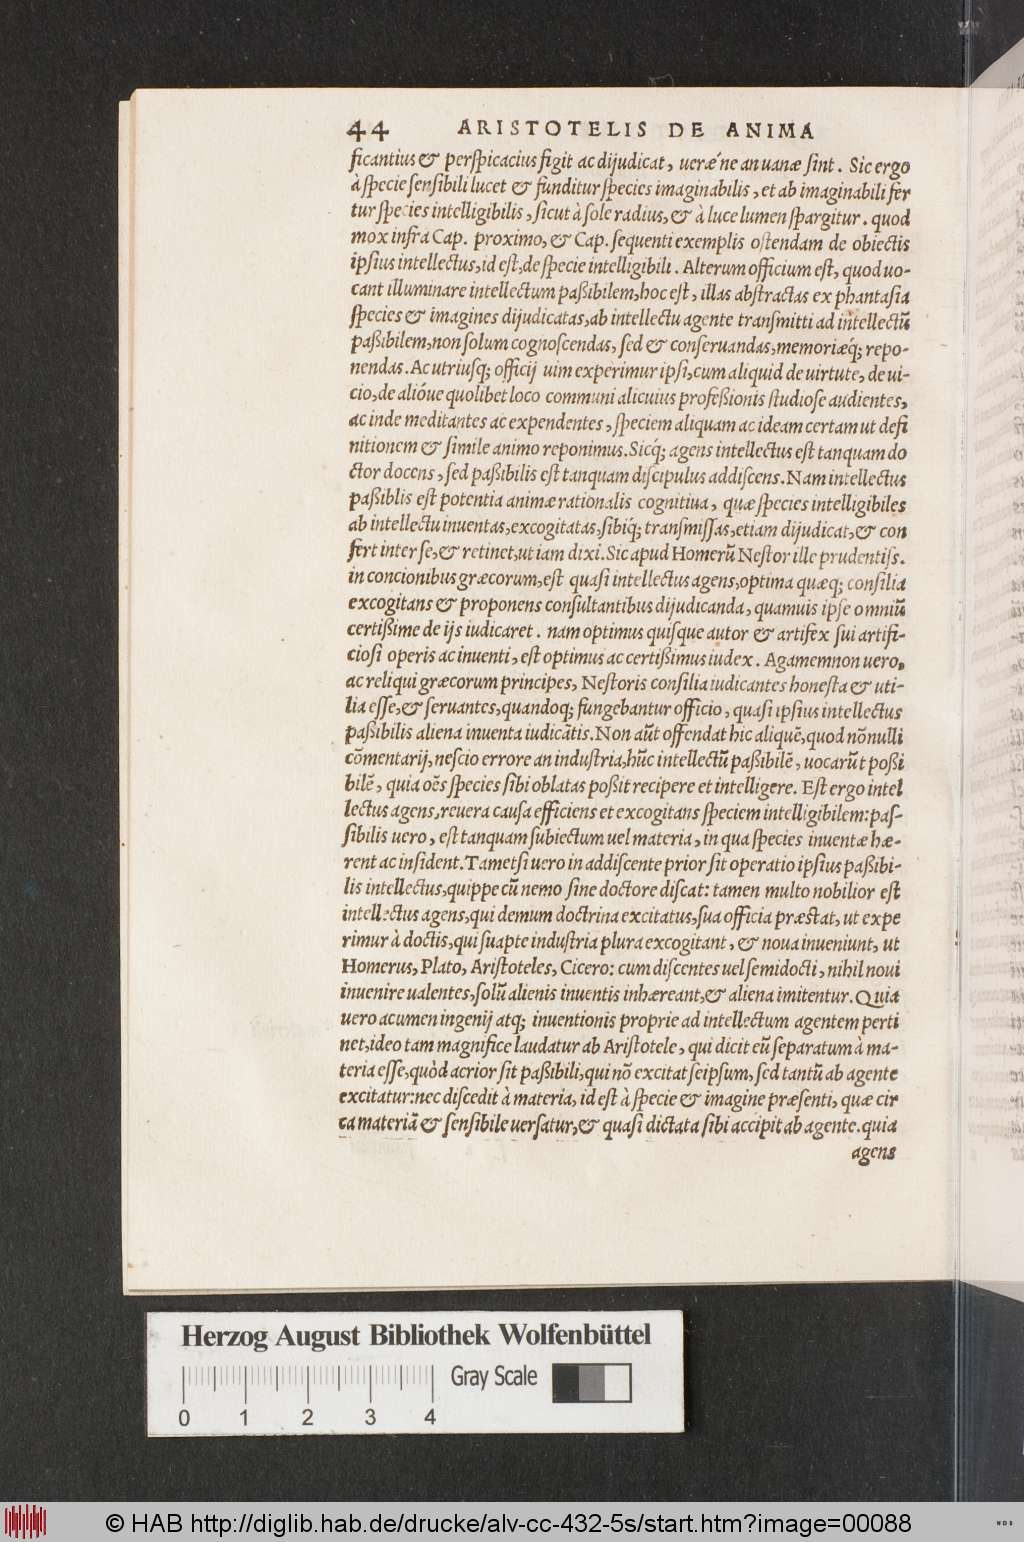 44 ARISTOTELIS DE ANIMA
ficantius & perspicacius figit ac dijudicat, ueræ'ne an uanæ sint. Sic ergo
à specie sensibili lucet & funditur species imaginabilis, et ab imaginabili fer
tur species intelligibilis, sicut à sole radius, & à luce lumen spargitur. quod
mox infrà Cap. proximo, & Cap. sequenti exemplis ostendam de obiectis
ipsius intellectus, id est, de specie intelligibili. Alterum officium est, quod uo-
cant illuminare intellectum paßibilem, hoc est, illas abstractas ex phantasia
species & imagines dijudicatas, ab intellectu agente transmitti ad intellectũ
paßibilem, non solum cognoscendas, sed & conseruandas, memoriæq́; repo-
nendas. Ac utriusq; officij uim experimur ipsi, cum aliquid de uirtute, de ui-
cio, de alióue quolibet loco communi alicuius profeßionis studiose audientes,
ac inde meditantes ac expendentes, speciem aliquam ac ideam certam ut defi
nitionem & simile animo reponimus. Sicq́; agens intellectus est tanquam do
ctor docens, sed paßibilis est tanquam discipulus addiscens. Nam intellectus
paßiblis est potentia animæ rationalis cognitiua, quæ species intelligibiles
ab intellectu inuentas, excogitatas, sibiq́; transmissas, etiam dijudicat, & con
fert inter se, & retinet, ut iam dixi. Sic apud Homerũ Nestor ille prudentiss.
in concionibus græcorum, est quasi intellectus agens, optima quæq; consilia
excogitans & proponens consultantibus dijudicanda, quamuis ipse omniũ
certißime de ijs iudicaret. nam optimus quisque autor & artifex sui artifi-
ciosi operis ac inuenti, est optimus ac certißimus iudex. Agamemnon uero,
ac reliqui græcorum principes, Nestoris consilia iudicantes honesta & uti-
lia esse, & seruantes, quandoq; fungebantur officio, quasi ipsius intellectus
paßibilis aliena inuenta iudicãtis. Non aũt offendat hic aliquẽ, quod nõnulli
cõmentarij, nescio errore an industria, hũc intellectũ paßibilẽ, uocarũt poßi
bilẽ, quia oẽs species sibi oblatas poßit recipere et intelligere. Est ergo intel
lectus agens, reuera causa efficiens et excogitans speciem intelligibilem: pas-
sibilis uero, est tanquam subiectum uel materia, in qua species inuentæ hæ-
rent ac insident. Tametsi uero in addiscente prior sit operatio ipsius paßibi-
lis intellectus, quippe cũ nemo sine doctore discat: tamen multo nobilior est
intellectus agens, qui demum doctrina excitatus, sua officia præstat, ut expe
rimur à doctis, qui suapte industria plura excogitant, & noua inueniunt, ut
Homerus, Plato, Aristoteles, Cicero: cum discentes uel semidocti, nihil noui
inuenire ualentes, solũ alienis inuentis inhæreant, & aliena imitentur. Quia
uero acumen ingenij atq; inuentionis proprie ad intellectum agentem perti
net, ideo tam magnifice laudatur ab Aristotele, qui dicit eũ separatum à ma-
teria esse, quòd acrior sit paßibili, qui nõ excitat seipsum, sed tantũ ab agente
excitatur: nec discedit à materia, id est à specie & imagine præsenti, quæ cir
ca materiã & sensibile uersatur, & quasi dictata sibi accipit ab agente. quia
agens
Herzog August Bibliothek Wolfenbüttel
Gray Scale
0 1 2 3 4
© HAB http://diglib.hab.de/drucke/alv-cc-432-5s/start.htm?image=00088